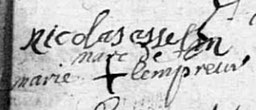 nicolas asselin
marc de
marie + lempreur